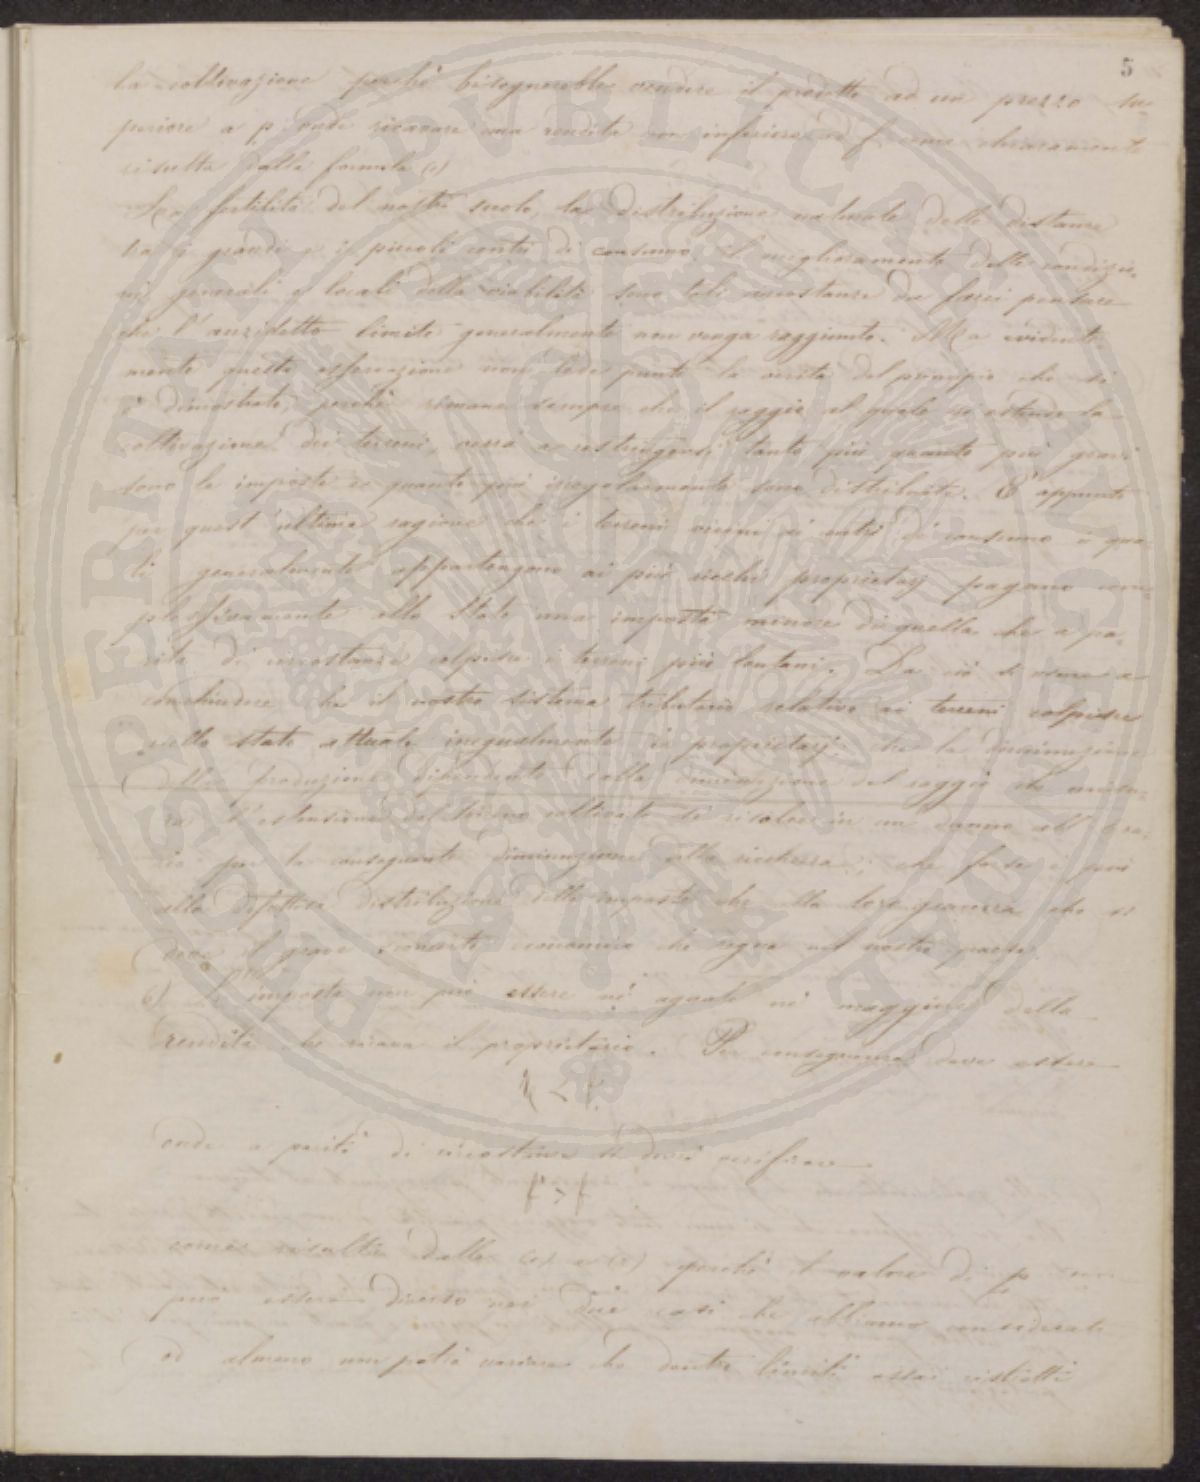 5
la coltivazione perchè bisognerebbe vendere il prodotto ad un prezzo su=
periore a p, onde ricavare una rendita non inferiore ad f come chiaramente
risulta dalla formola
La fertilità del nostro suolo, la distribuzione naturale delle distanze
tra i grandi e i piccoli centri di consumo, il miglioramento delle condizio=
ni generali e locali della viabilità sono tali circostanze da farci pensare
che l'anzidetto limite generalmente non venga raggiunto. Ma evidente
mente questa osservazione non lede punto la verità del principio che si
è dimostrato, perchè rimane sempre che il raggio al quale si estende la
coltivazione dei terreni, verrà a restringersi tanto più quanto più gravi
sono le imposte e quanto più irregolarmente sono distribuite. È appunto
per quest'ultima ragione che i terreni vicini ai centri di consumo e qua
li generalmente appartengono ai più ricchi proprietarj pagano com=
plessivamente allo Stato una imposta minore di quella che a pa=
rità di circostanze colpisce i terreni più lontani. Da ciò si viene a
conchiudere che il nostro sistema tributario relativo ai terreni colpisce
nello stato attuale inegualmente i proprietarj: che la diminuzione
della produzione dipendente dalla diminuzione del raggio che misu=
ra l'estensione del terreno coltivato si risolve in un danno all'Era=
rio per la conseguente diminuzione della ricchezza; che forse è più
alla difettiva distribuzione delle imposte che alla loro gravezza che si
deve il grave sconcerto economico che regna nel nostro paese.
6) L'imposta non può essere nè eguale nè maggiore della
rendita che ricava il proprietario. Per conseguenza deve essere
onde a parità di circostanze si dovrà verificare
f' > f
come risulta dalle (1) e (2) perchè il valore di p non
può essere diverso nei due casi che abbiamo considerati
od almeno non potrà variare che dentro limiti assai ristretti